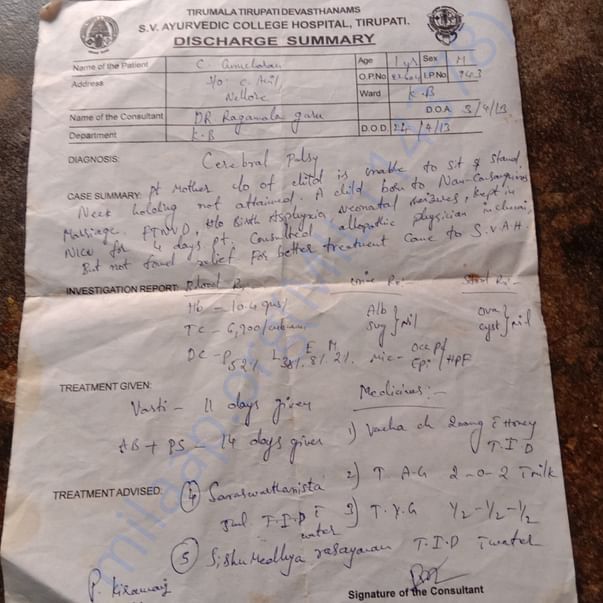 TIRUMALA TIRUPATI DEVASTHANAMS
S.V. AYURVEDIC COLLEGE HOSPITAL, TIRUPATI.
DISCHARGE SUMMARY
Name of the Patient C. Age 1 yrs Sex M
Address S/o. C. Anil O.P.No I.P.No 943
Nellore Ward K.B
D.O.A 3/4/13
Name of the Consultant DR Ragamala garu
Department K.B D.O.D. /4/13
DIAGNOSIS: Cerebral Palsy
CASE SUMMARY: Pt Mother c/o of child is unable to sit & stand,
Neck holding not attained. A child born to Non-Consanguinous
Marriage. FTNVD, H/o Birth Asphyxia, Neonatal seizures, kept in
NICU for 4 days pt. Consulted allopathic physician in chennai,
But not found relief For better treatment Came to S.V.A.H.
INVESTIGATION REPORT: Blood Rx:- Urine Rx:- Stool Rx:-
Hb - 10.4 gms/ Alb } Nil Ova } Nil
TC - 6,900/cubumm Sug cyst
DC - P 52% L 38% E 8% M 2%. Mic - Occ Pc/ Epi /HPF
TREATMENT GIVEN: Medicines:-
Vasti - 11 days given
AB + PS - 14 days given 1) Vacha ch Honey
T.I.D
2) T. A.G 2-0-2 milk
TREATMENT ADVISED: 4) Saraswatharista
5ml T.I.D water 3) T. Y.G 1/2-1/2-1/2
5) Sishu Medhya rasayanam T.I.D water
Signature of the Consultant
milaap.org